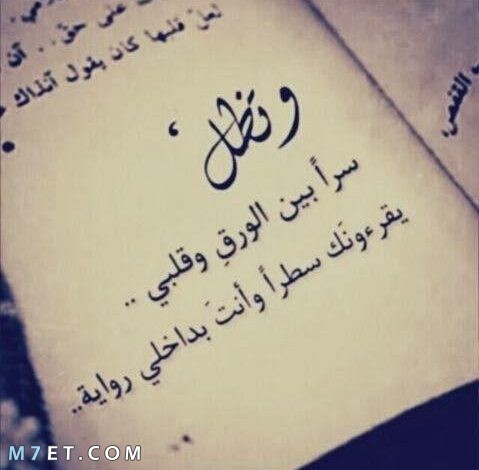 على حق.. أن
لعلّ قلبها كان يقول آنذاك
وتظل،
سراً بين الورقِ وقلبي ..
يقرءونَك سطراً وأنتَ بداخلي رواية..
M7ET.COM